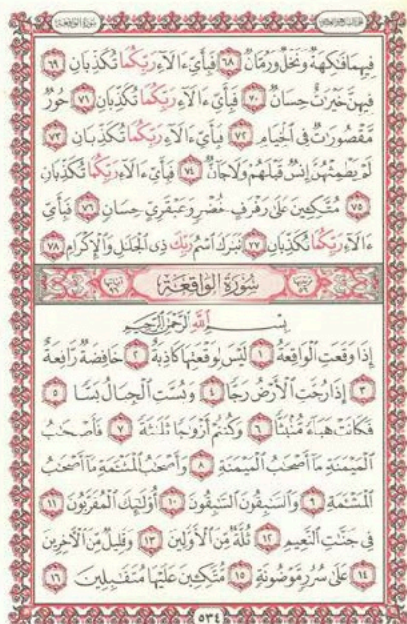 سورة الواقعة
فيهما فاكهة ونخل ورمان ٦٨ فبأي ءالاء ربكما تكذبان ٦٩
فيهن خيرات حسان ٧٠ فبأي ءالاء ربكما تكذبان ٧١ حور
مقصورات في الخيام ٧٢ فبأي ءالاء ربكما تكذبان ٧٣
لم يطمثهن إنس قبلهم ولا جان ٧٤ فبأي ءالاء ربكما تكذبان
٧٥ متكئين على رفرف خضر وعبقري حسان ٧٦ فبأي
ءالاء ربكما تكذبان ٧٧ تبارك اسم ربك ذي الجلال والإكرام ٧٨
سورة الواقعة
بسم الله الرحمن الرحيم
إذا وقعت الواقعة ١ ليس لوقعتها كاذبة ٢ خافضة رافعة
٣ إذا رجت الأرض رجا ٤ وبست الجبال بسا ٥
فكانت هباء منبثا ٦ وكنتم أزواجا ثلاثة ٧ فأصحاب
الميمنة ما أصحاب الميمنة ٨ وأصحاب المشئمة ما أصحاب
المشئمة ٩ والسابقون السابقون ١٠ أولئك المقربون ١١
في جنات النعيم ١٢ ثلة من الأولين ١٣ وقليل من الآخرين
١٤ على سرر موضونة ١٥ متكئين عليها متقابلين ١٦
٥٣٤